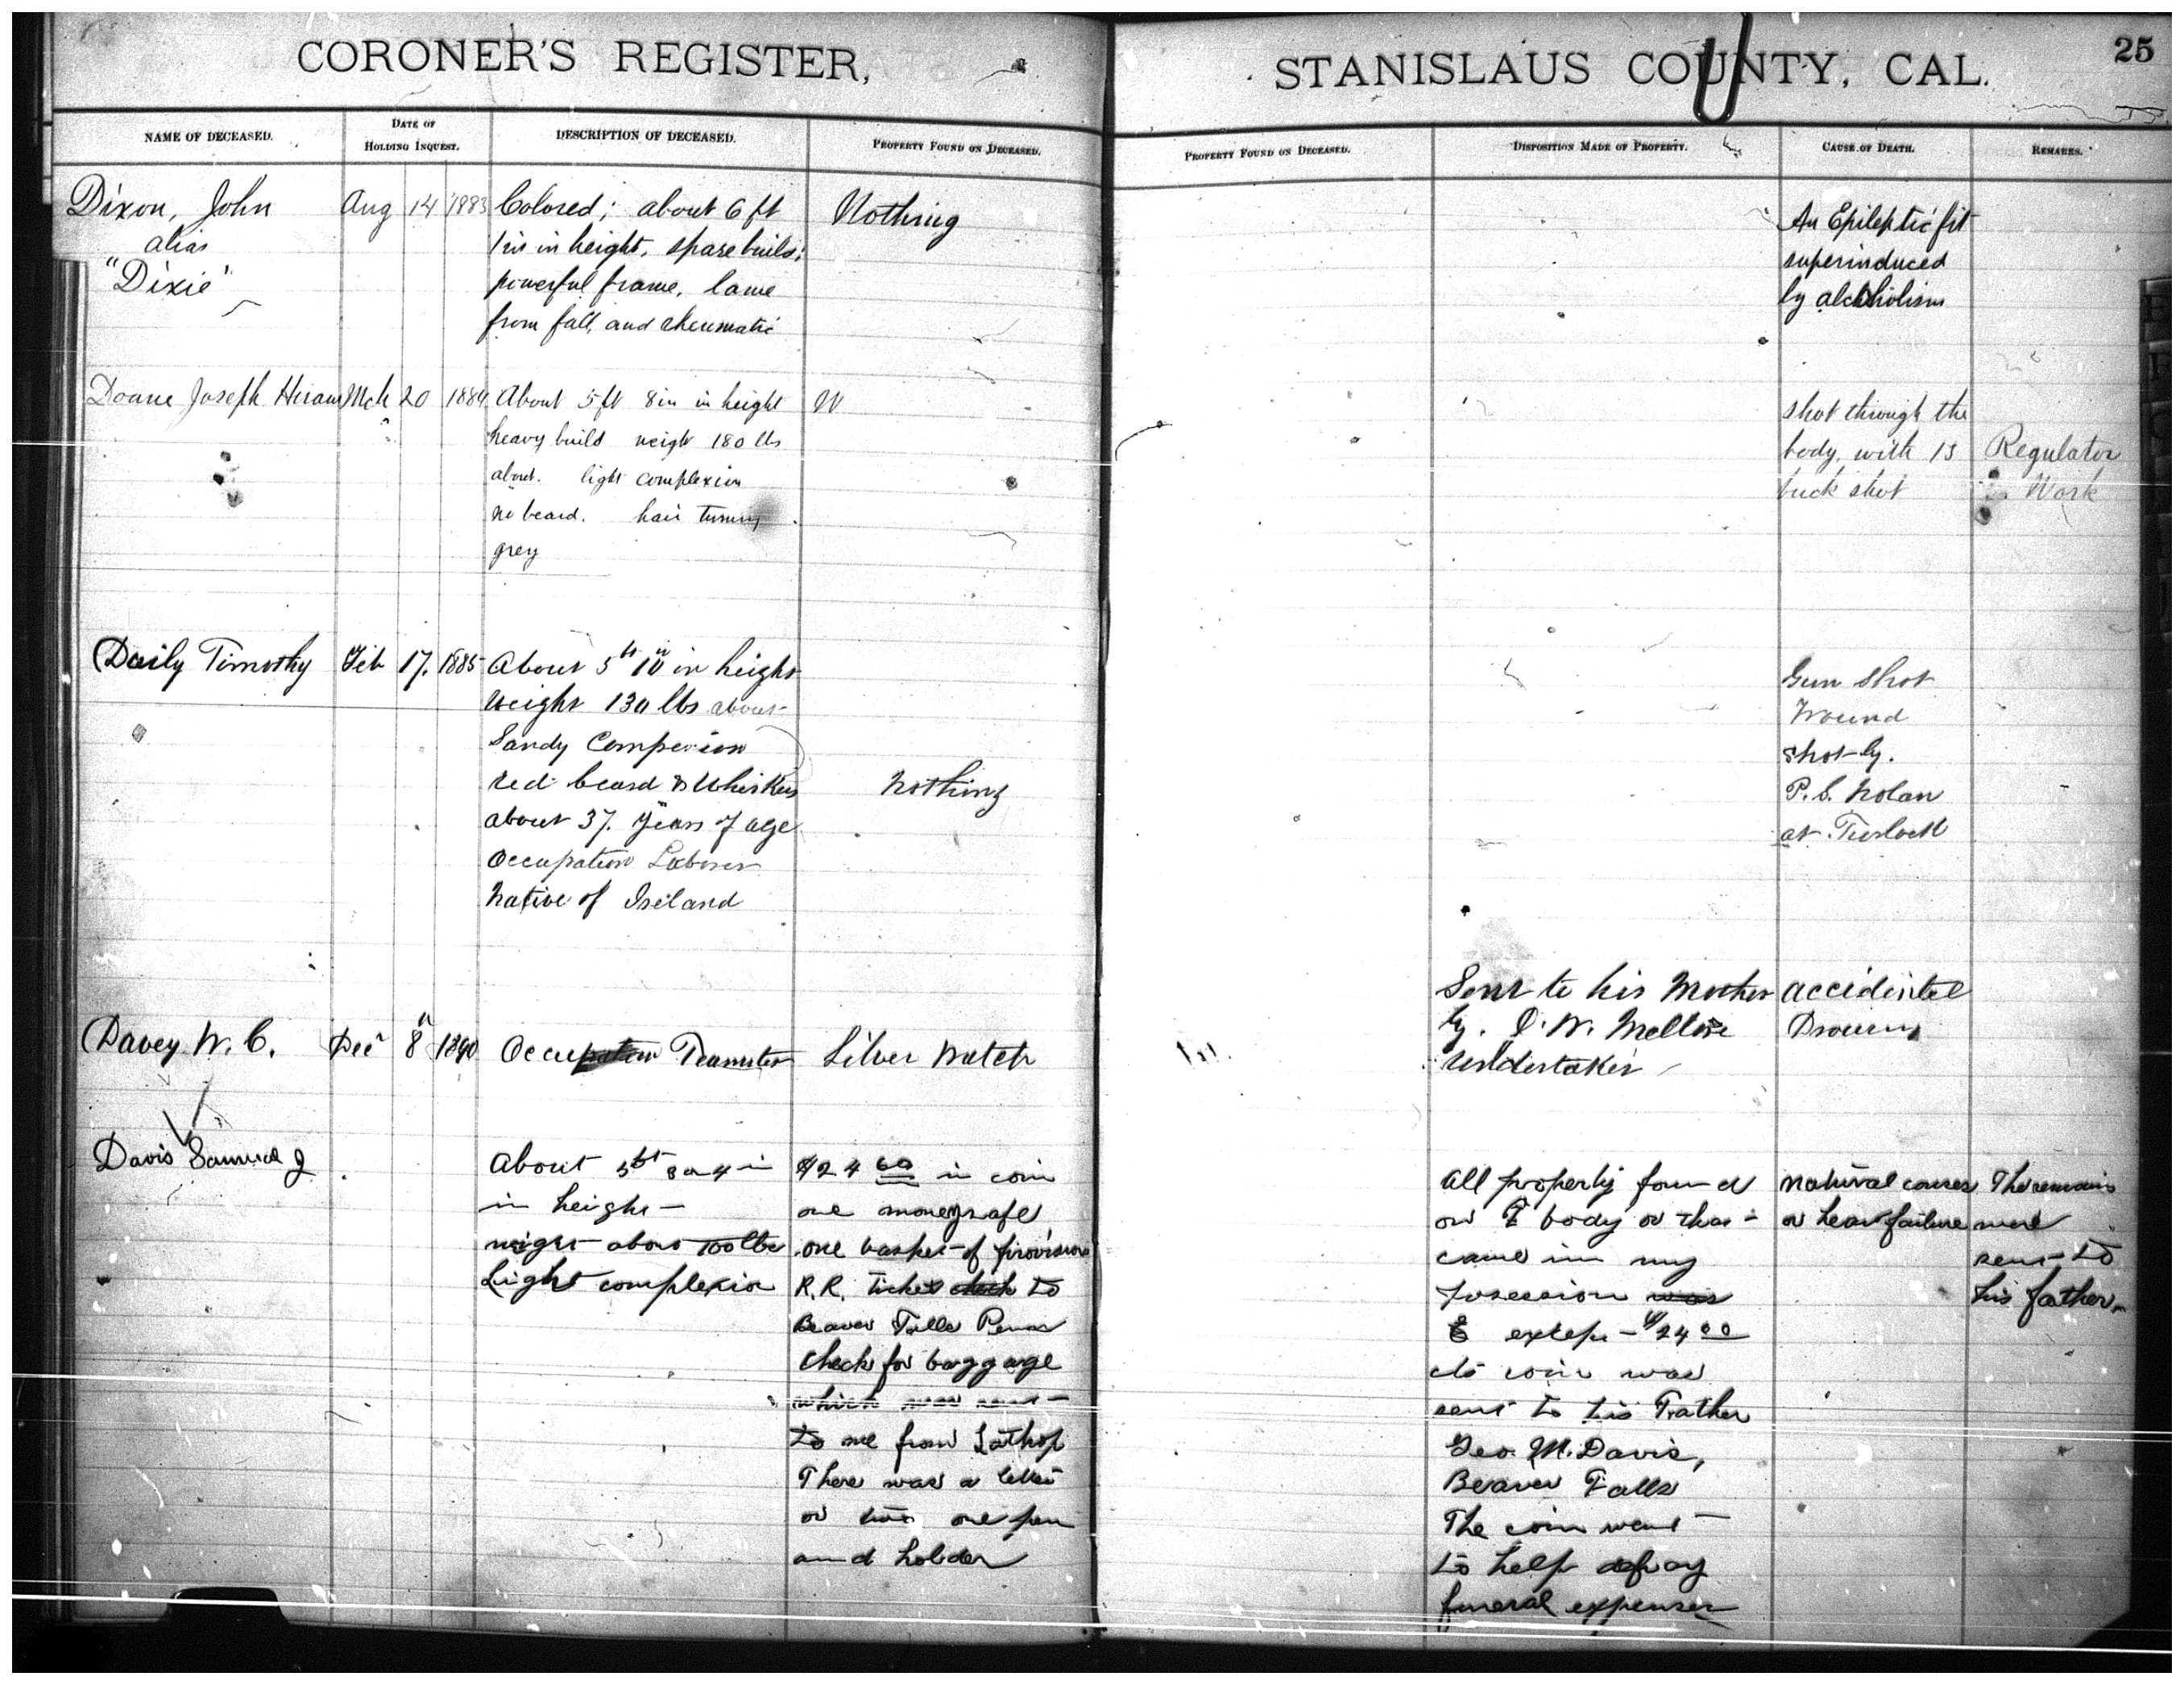 CORONER'S REGISTER,
STANISLAUS COUNTY, CAL.
25
NAME OF DECEASED.
DATE OF HOLDING INQUEST.
DESCRIPTION OF DECEASED.
PROPERTY FOUND ON DECEASED.
PROPERTY FOUND ON DECEASED.
DISPOSITION MADE OF PROPERTY.
CAUSE OF DEATH.
REMARKS.
Dixon, John
alias
"Dixie"
Aug 14 1883
Colored; about 6 ft
1 in in height, spare build;
powerful frame, lame
from fall, and rheumatic
Nothing
An Epileptic fit
superinduced
by alcoholism
Doane Joseph Hiram
Mch 20 1884
About 5 ft 8 in in height
heavy build weight 180 lbs
about. light complexion
no beard. hair turning
grey
N
shot through the
body, with 13
buck shot
Regulator
Work
Daily Timothy
Feb 17. 1885
About 5 ft 10 in in height
Weight 130 lbs about
Sandy Complexion
red beard & Whiskers
about 37. years of age
Occupation Laborer
Native of Ireland
Nothing
Gun Shot
Wound
shot by.
P. S. Nolan
at Turlock
Davey W. C.
Dec 8" 1890
Occupation Teamster
Silver Watch
Sent to his Mother
by.
Undertaker
accidental
Drowning
Davis Samuel J
About 5 ft 3 or 4 in
in height
weight about 100 lbs
Light complexion
$24 60 in coin
one
one basket of provision
R.R. Ticket check to
Beaver Falls Penn
Check for baggage
which was sent
to me from Lathrop
There was a letter
or two one pen
and holder
All property found
on body or that
came in my
posession was
except $24 00
cts coin was
sent to his Father
Geo. M. Davis,
Beaver Falls
The coin went
to help defray
funeral expenses
natural causes
or heart failure
The remains
were
sent to
his father.